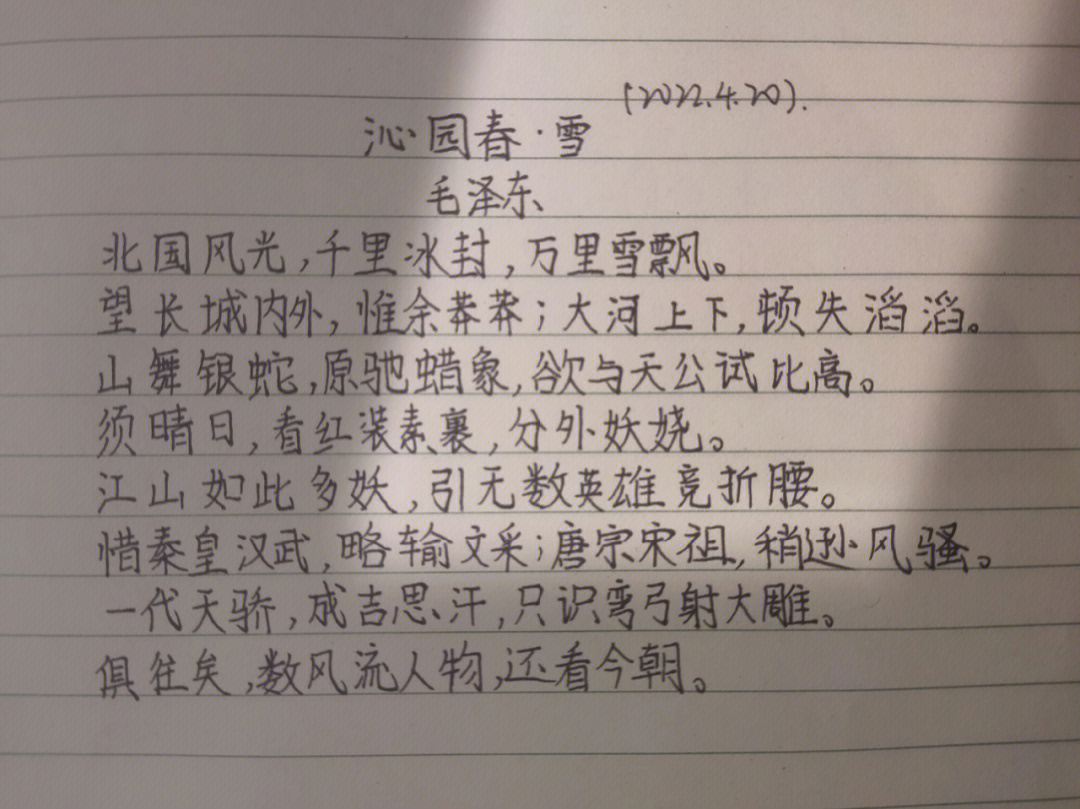 (2022.4.20).
沁园春·雪
毛泽东
北国风光,千里冰封,万里雪飘。
望长城内外,惟余莽莽;大河上下,顿失滔滔。
山舞银蛇,原驰蜡象,欲与天公试比高。
须晴日,看红装素裹,分外妖娆。
江山如此多妖,引无数英雄竞折腰。
惜秦皇汉武,略输文采;唐宗宋祖,稍逊风骚。
一代天骄,成吉思汗,只识弯弓射大雕。
俱往矣,数风流人物,还看今朝。